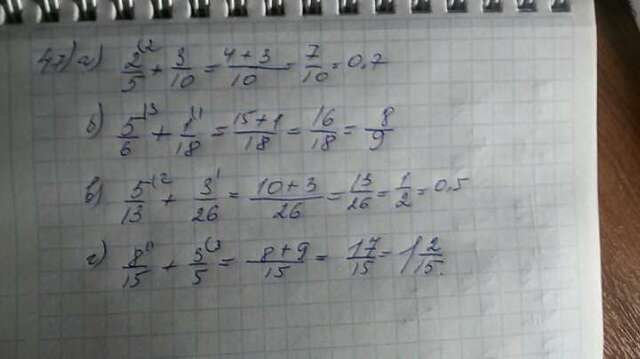 47) а) 2/5 (2 + 3/10 = 4+3/10 = 7/10 = 0,7
б) 5/6 (3 + 1/18 (1 = 15+1/18 = 16/18 = 8/9
в) 5/13 (2 + 3/26 (1 = 10+3/26 = 13/26 = 1/2 = 0,5
г) 8/15 (1 + 3/5 (3 = 8+9/15 = 17/15 = 1 2/15.